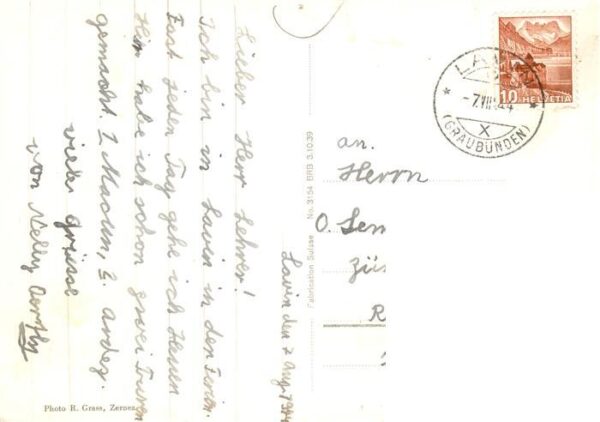 Lieber Herr Lehrer!
Ich bin in Lavin in den Ferien.
Fast jeden Tag gehe ich Heuen
Hier habe ich schon zwei Turen
gemacht. 1. Macun, 2.
viele grüsse
von Nelly
Lavin den 7 Aug 1944
Fabrication Suisse No. 3154 BRB 3.10.39
Photo R. Grass, Zernez
10 HELVETIA
LAVIN
-7.VIII.44
X
(GRAUBÜNDEN)
an.
Herrn
O. Sen
Zür
R